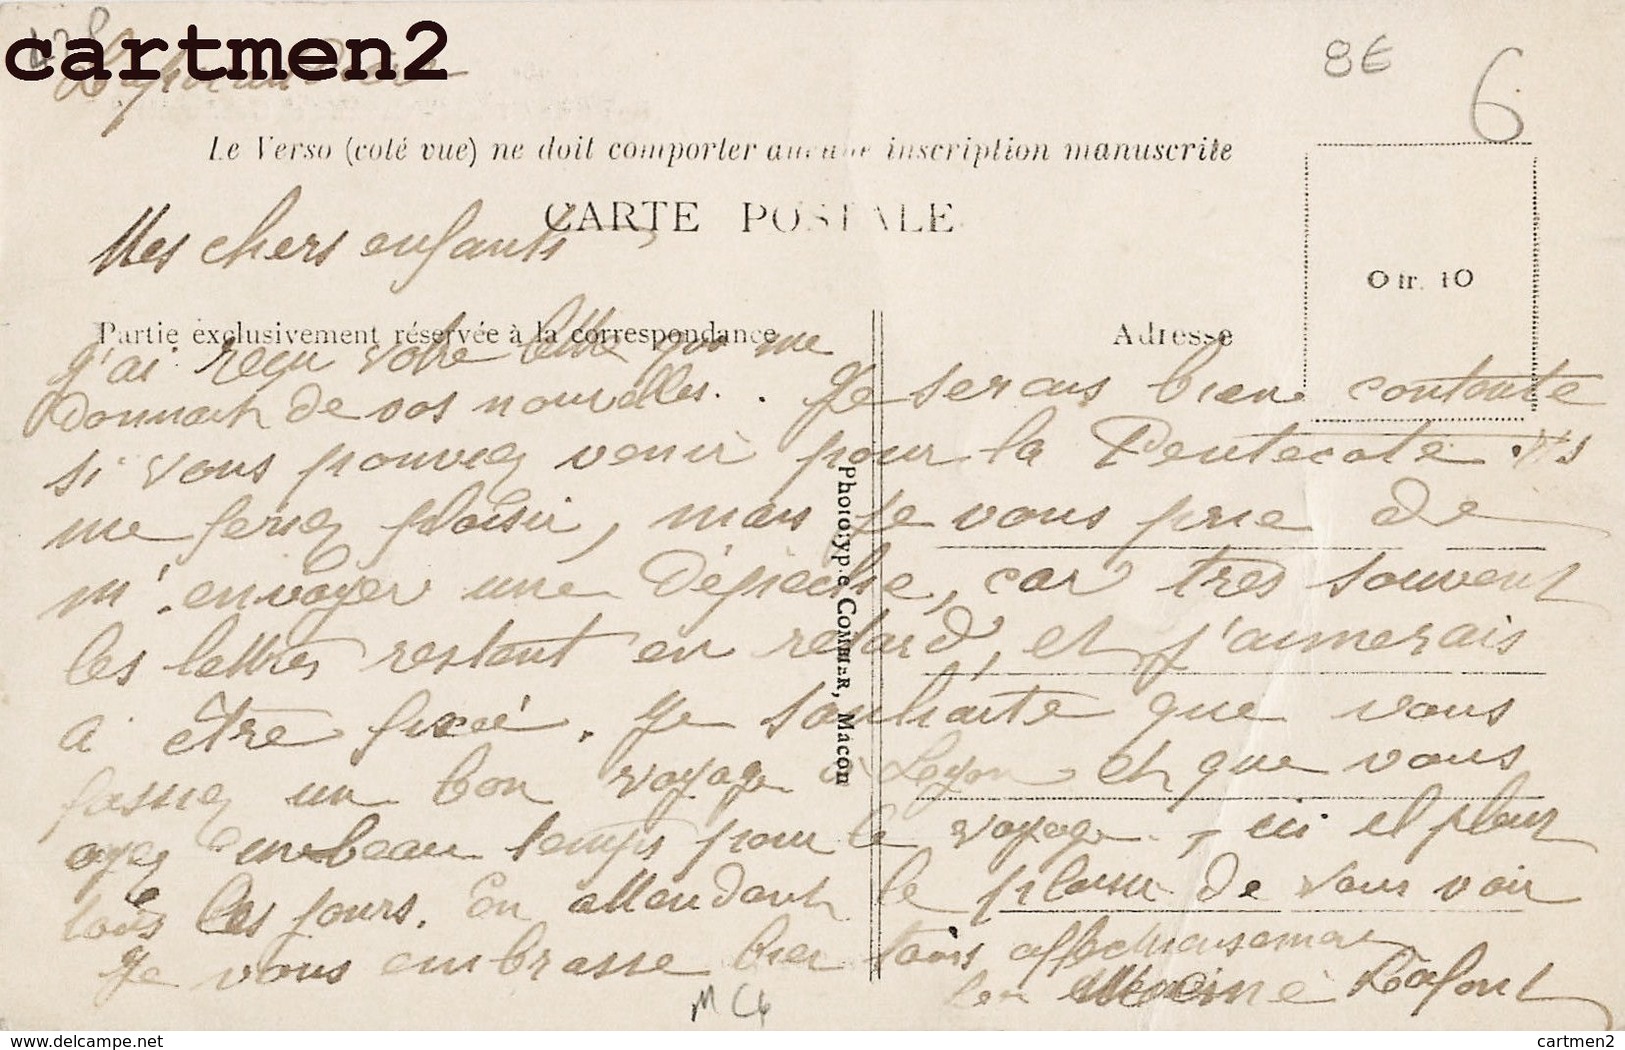 cartmen2
8€
6
Le Verso (coté vue) ne doit comporter aucune inscription manuscrite
CARTE POSTALE
Mes chers enfants
0 fr. 10
Partie exclusivement réservée à la correspondance
Adresse
J'ai reçu votre lettre qui me
donnait de vos nouvelles. Je serais bien contente
si vous pouviez venir pour la Pentecote. Vs
me feriez plaisir, mais je vous prie de
m'envoyer une Dépieche, car très souvent
les lettres restent en retard, et j'aimerais
à être fixé. Je souhaite que vous
fassiez un bon voyage à Lyon et que vous
ayez un beau temps pour le voyage, ici il pleut
tous les jours. En attendant le plaisir de vous voir
Je vous embrasse bien tous affectueusement
Lafont
Phototypie COMMER, MACON
M C6
delcampe.net
cartmen2